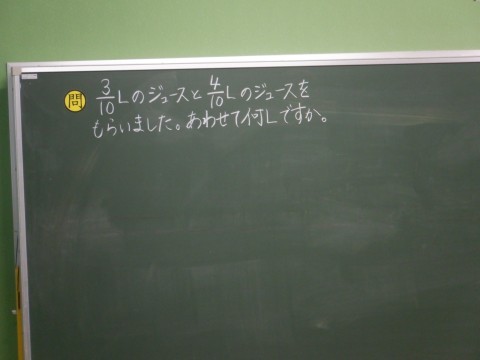 問 3/10Lのジュースと4/10Lのジュースを
もらいました。あわせて何Lですか。